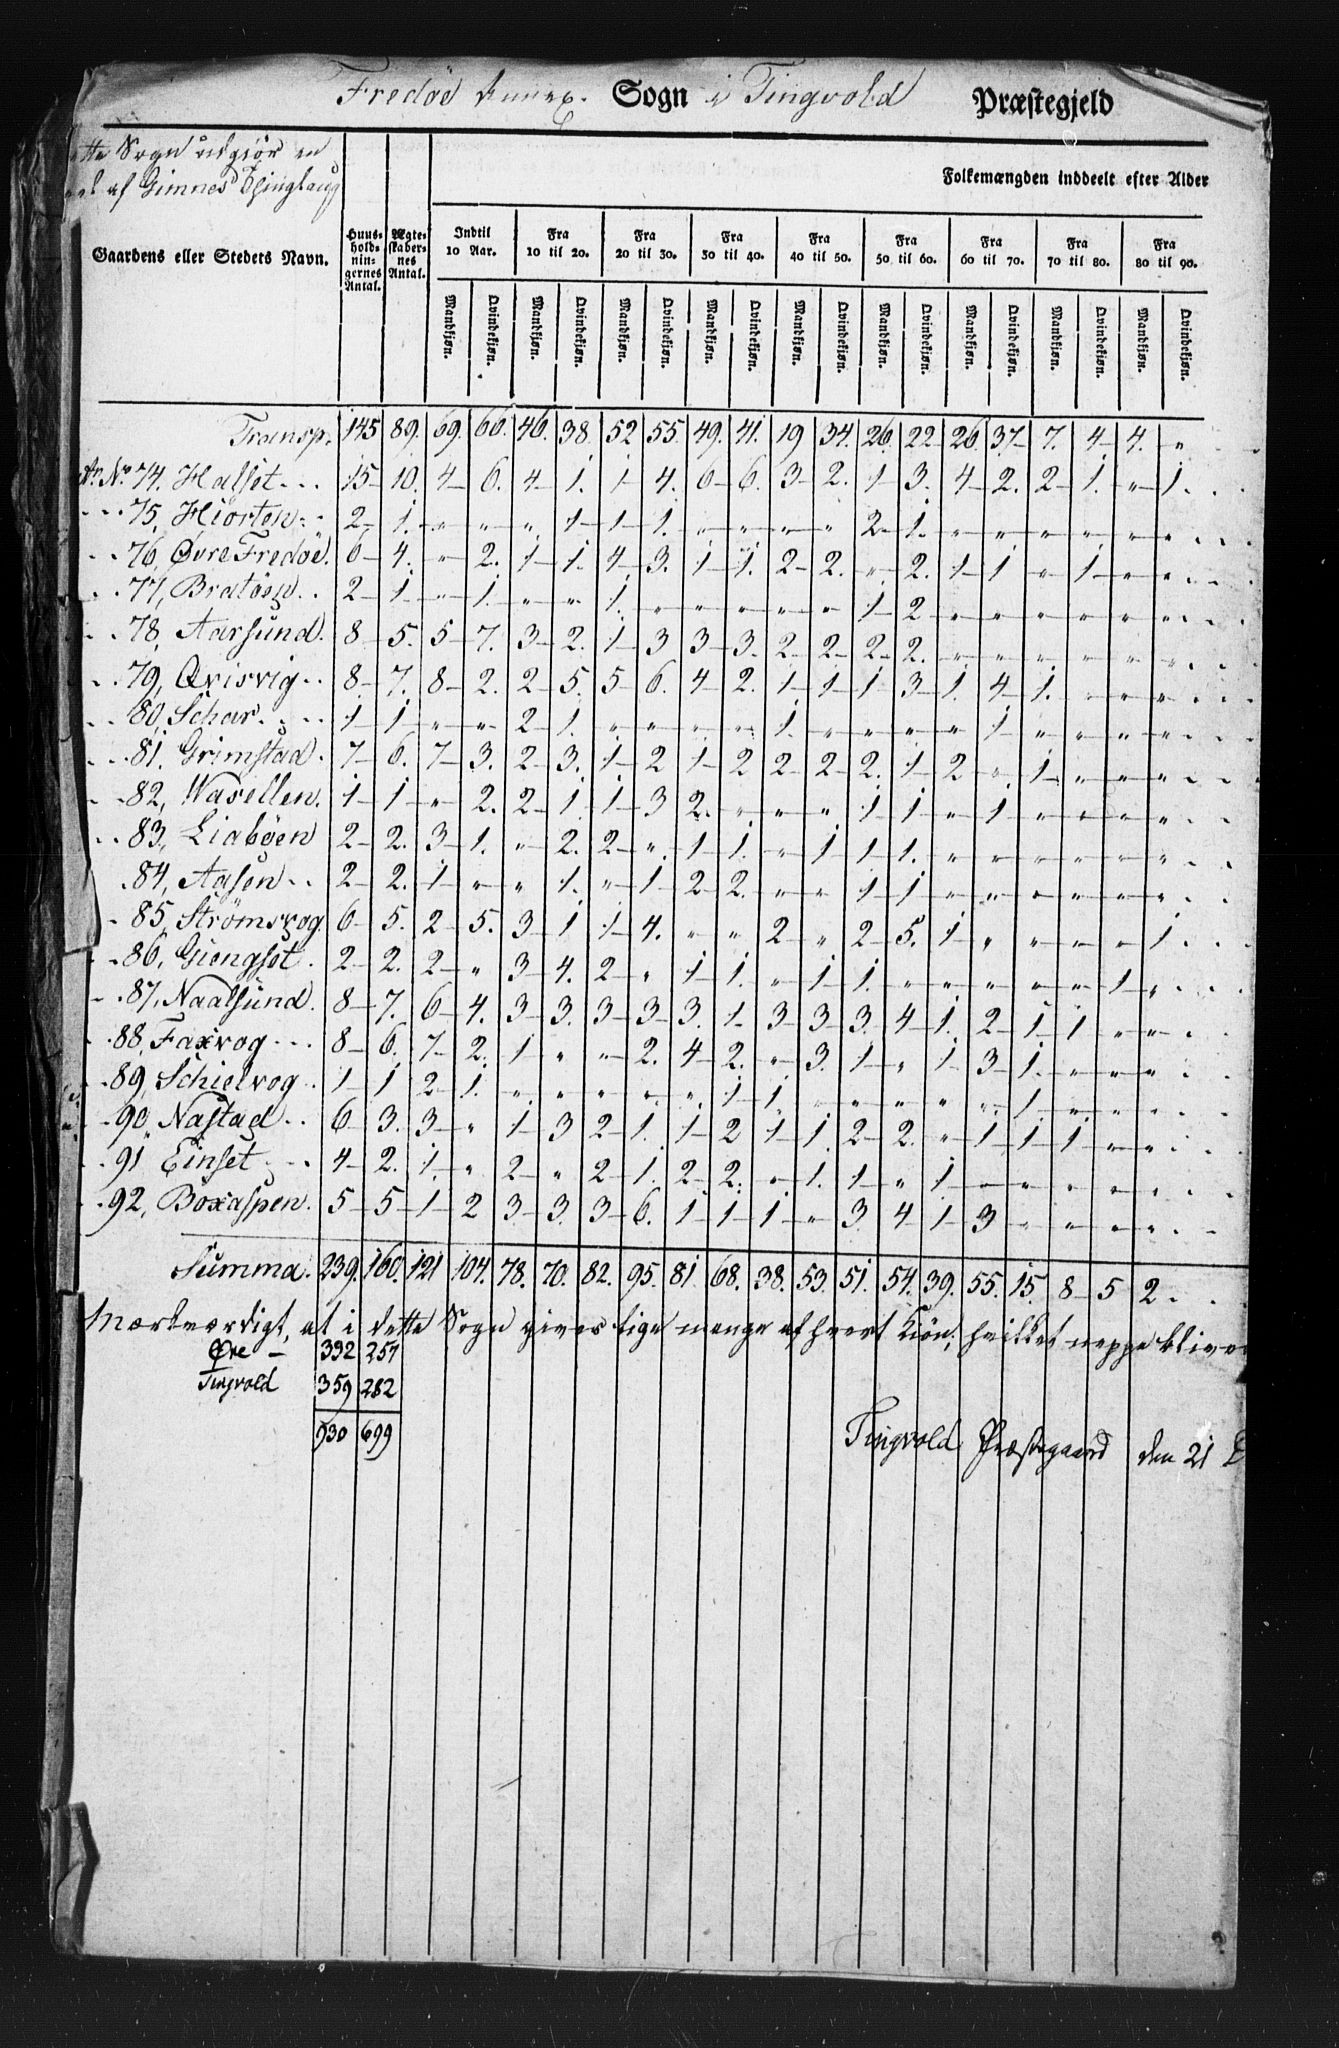 Fredöe Annex. Sogn i Tingvold Præstegjeld
Sogn udgiör en
af Gimnes Thinglaug
Folkemængden inddeelt efter Alder
Gaardens eller Stedets Navn. Huus-holdnin-gernes Antal. Ægte-skaber-nes Antal. Indtil 10 Aar. Fra 10 til 20. Fra 20 til 30. Fra 30 til 40. Fra 40 til 50. Fra 50 til 60. Fra 60 til 70. Fra 70 til 80. Fra 80 til 90.
Mandkjøn. Qvindekjøn. Mandkjøn. Qvindekjøn. Mandkjøn. Qvindekjøn. Mandkjøn. Qvindekjøn. Mandkjøn. Qvindekjøn. Mandkjøn. Qvindekjøn. Mandkjøn. Qvindekjøn. Mandkjøn. Qvindekjøn. Mandkjøn. Qvindekjøn.
Transp. 145 89. 69. 60. 46. 38. 52 55. 49. 41. 19 34. 26. 22 26. 37 7. 4 4. "
No 74, Halset 15 10. 4 6. 4 1. 1 4. 6 6. 3 2. 1 3. 4 2. 2 1. " 1.
75, Hiorten 2 1. " " " 1 1 1. " " " " 2 1. " " " " " "
76, Øvre Fredöe. 6 4. " 2. 1 1. 4 3. 1 1. 2 2. " 2. 1 1 " 1 " "
77, Bratöen 2 1 " 1. " " 1. " " " " " 1 2 " " " " " "
78, Aarsund. 8 5. 5 7. 3 2. 1 3 3 3. 2 2 2 2. " " " " " "
79, Qvisvig 8 7. 8 2. 2 5. 5 6. 4 2. 1 1 1 3 1. 4 1. " " "
80, Schar. 1 1 " " 2 1. " " " " 1. " " " " 1 " " " "
81. Grimstad. 7 6. 7 3. 2 3. 1 2 1 2 2 2 2. 1 2 " 1 " " "
82, Wasellen. 1 1 " 2. 2 1 1 3 2. " " " 1 1 " 1 " " " "
83, Liabøen 2 2. 3 1. " 2. 2 " 1 1. " 1 1 1. " " " " " "
84, Aasen 2 2. 1 " " 1. " 1 2 2. " " 1 1 " " " " " "
85, Strömsvog. 6 5. 2 5. 3 1 1 4. " " 2 " 2 5. 1 " " " " 1.
86, Giengset. 2 2. 2 " 3 4. 2 " 1 1. " 1 1. " " " " " 1 "
87, Naalsund. 8 7. 6 4. 3 3. 3 3 3. 1 3 3 3. 4 1. 2 1 1 " "
88, Faxvog 8 6. 7 2. 1 " " 2. 4 2. " 3. 1 " 1 3 1. " " "
89, Schielvog 1 1 2 1. " " " " " 1 1 " " " " " 1. " " "
90, Nastad 6 3. 3 " 1 3 2 1. 1 2 1 1. 2 2. " 1 1 1 " "
91, Einset 4 2. 1. " 2 " 2 1. 2 2. " 1. 1 " 1 " " " " "
92, Boxaspen. 5 5 1 2 3 3. 3 6. 1 1 1 " 3. 4 1 3 " " " "
Summa. 239. 160. 121 104. 78. 70. 82. 95. 81. 68. 38. 53. 51. 54. 39. 55. 15. 8 5 2
Mærkværdigt, at i dette Sogn gives lige mange af hvert Kiön, hvilket neppe bliver
Øre 332 257
Tingvold 359 282
930 699
Tingvold Præstegaard den 21